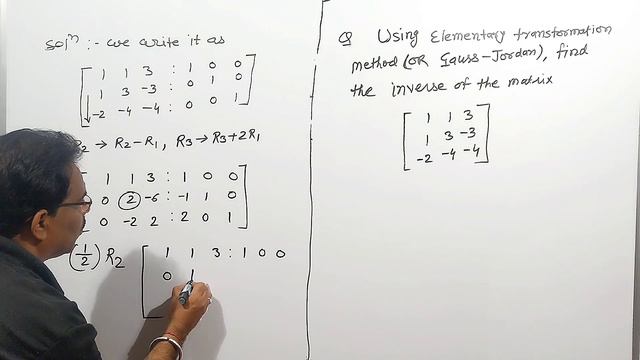 Solⁿ :- we write it as
1 1 3 : 1 0 0
1 3 -3 : 0 1 0
-2 -4 -4 : 0 0 1
R₂ → R₂-R₁, R₃→R₃+2R₁
1 1 3 : 1 0 0
0 2 -6 : -1 1 0
0 -2 2 : 2 0 1
(1/2) R₂
1 1 3 : 1 0 0
0 1
Q Using Elementary transformation
method (OR Gauss-Jordan), find
the inverse of the matrix
1 1 3
1 3 -3
-2 -4 -4